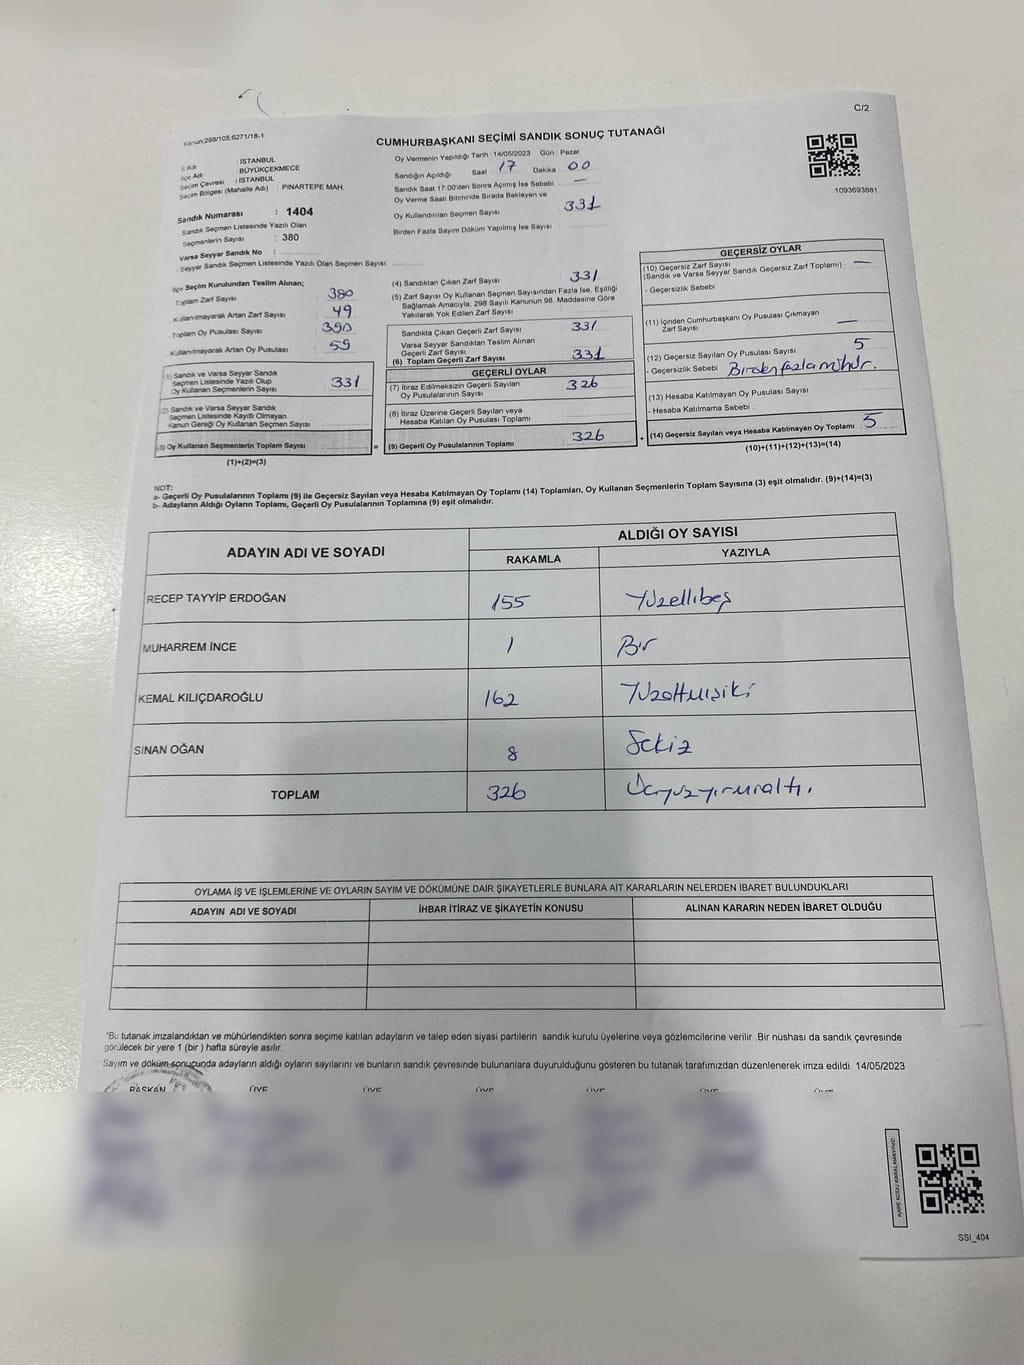 C/2
Kanun:298/105,6271/18-1
CUMHURBAŞKANI SEÇİMİ SANDIK SONUÇ TUTANAĞI
İl Adı : İSTANBUL
İlçe Adı : BÜYÜKÇEKMECE
Seçim Çevresi : İSTANBUL
Seçim Bölgesi (Mahalle Adı) : PINARTEPE MAH.
Sandık Numarası : 1404
Sandık Seçmen Listesinde Yazılı Olan
Seçmenlerin Sayısı : 380
Varsa Seyyar Sandık No :
Seyyar Sandık Seçmen Listesinde Yazılı Olan Seçmen Sayısı:
Oy Vermenin Yapıldığı Tarih :14/05/2023 Gün : Pazar
Sandığın Açıldığı Saat 17 Dakika : 00
Sandık Saat 17:00'den Sonra Açımış İse Sebebi : —
Oy Verme Saati Bitiminde Sırada Bekleyen ve
Oy Kullandırılan Seçmen Sayısı 331
Birden Fazla Sayım Döküm Yapılmış İse Sayısı
1093693881
İlçe Seçim Kurulundan Teslim Alınan;
Toplam Zarf Sayısı 380
Kullanılmayarak Artan Zarf Sayısı 49
Toplam Oy Pusulası Sayısı 390
Kullanılmayarak Artan Oy Pusulası 59
(1) Sandık ve Varsa Seyyar Sandık
Seçmen Listesinde Yazılı Olup
Oy Kullanan Seçmenlerin Sayısı 331
(2) Sandık ve Varsa Seyyar Sandık
Seçmen Listesinde Kayıtlı Olmayan
Kanun Gereği Oy Kullanan Seçmen Sayısı
(3) Oy Kullanan Seçmenlerin Toplam Sayısı =
(1)+(2)=(3)
(4) Sandıktan Çıkan Zarf Sayısı 331
(5) Zarf Sayısı Oy Kullanan Seçmen Sayısından Fazla İse, Eşitliği
Sağlamak Amacıyla, 298 Sayılı Kanunun 98. Maddesine Göre
Yakılarak Yok Edilen Zarf Sayısı
Sandıkta Çıkan Geçerli Zarf Sayısı 331
Varsa Seyyar Sandıktan Teslim Alınan
Geçerli Zarf Sayısı
(6) Toplam Geçerli Zarf Sayısı 331
GEÇERLİ OYLAR
(7) İtiraz Edilmeksizin Geçerli Sayılan
Oy Pusulasının Sayısı 326
(8) İtiraz Üzerine Geçerli Sayılan veya
Hesaba Katılan Oy Pusulası Toplamı
(9) Geçerli Oy Pusulalarının Toplamı 326 +
GEÇERSİZ OYLAR
(10) Geçersiz Zarf Sayısı
(Sandık ve Varsa Seyyar Sandık Geçersiz Zarf Toplamı) —
- Geçersizlik Sebebi
(11) İçinden Cumhurbaşkanı Oy Pusulası Çıkmayan
Zarf Sayısı —
(12) Geçersiz Sayılan Oy Pusulası Sayısı 5
- Geçersizlik Sebebi Birden fazla mühür.
(13) Hesaba Katılmayan Oy Pusulası Sayısı
- Hesaba Katılmama Sebebi :
(14) Geçersiz Sayılan veya Hesaba Katılmayan Oy Toplamı 5
(10)+(11)+(12)+(13)=(14)
NOT:
a- Geçerli Oy Pusulalarının Toplamı (9) ile Geçersiz Sayılan veya Hesaba Katılmayan Oy Toplamı (14) Toplamları, Oy Kullanan Seçmenlerin Toplam Sayısına (3) eşit olmalıdır. (9)+(14)=(3)
b- Adayların Aldığı Oyların Toplamı, Geçerli Oy Pusulalarının Toplamına (9) eşit olmalıdır.
ADAYIN ADI VE SOYADI ALDIĞI OY SAYISI
RAKAMLA YAZIYLA
RECEP TAYYİP ERDOĞAN 155 Yüzellibeş
MUHARREM İNCE 1 Bir
KEMAL KILIÇDAROĞLU 162 Yüzaltmışiki
SİNAN OĞAN 8 Sekiz
TOPLAM 326 Üçyüzyirmialtı.
OYLAMA İŞ VE İŞLEMLERİNE VE OYLARIN SAYIM VE DÖKÜMÜNE DAİR ŞİKAYETLERLE BUNLARA AİT KARARLARIN NELERDEN İBARET BULUNDUKLARI
ADAYIN ADI VE SOYADI İHBAR İTİRAZ VE ŞİKAYETİN KONUSU ALINAN KARARIN NEDEN İBARET OLDUĞU
*Bu tutanak imzalandıktan ve mühürlendikten sonra seçime katılan adayların ve talep eden siyasi partilerin sandık kurulu üyelerine veya gözlemcilerine verilir. Bir nüshası da sandık çevresinde
görülecek bir yere 1 (bir ) hafta süreyle asılır.
Sayım ve döküm sonucunda adayların aldığı oyların sayılarını ve bunların sandık çevresinde bulunanlara duyurulduğunu gösteren bu tutanak tarafımızdan düzenlenerek imza edildi. 14/05/2023
BAŞKAN ÜYE ÜYE ÜYE ÜYE ÜYE
KARE KODU KARALAMAYINIZ!
SSI_404